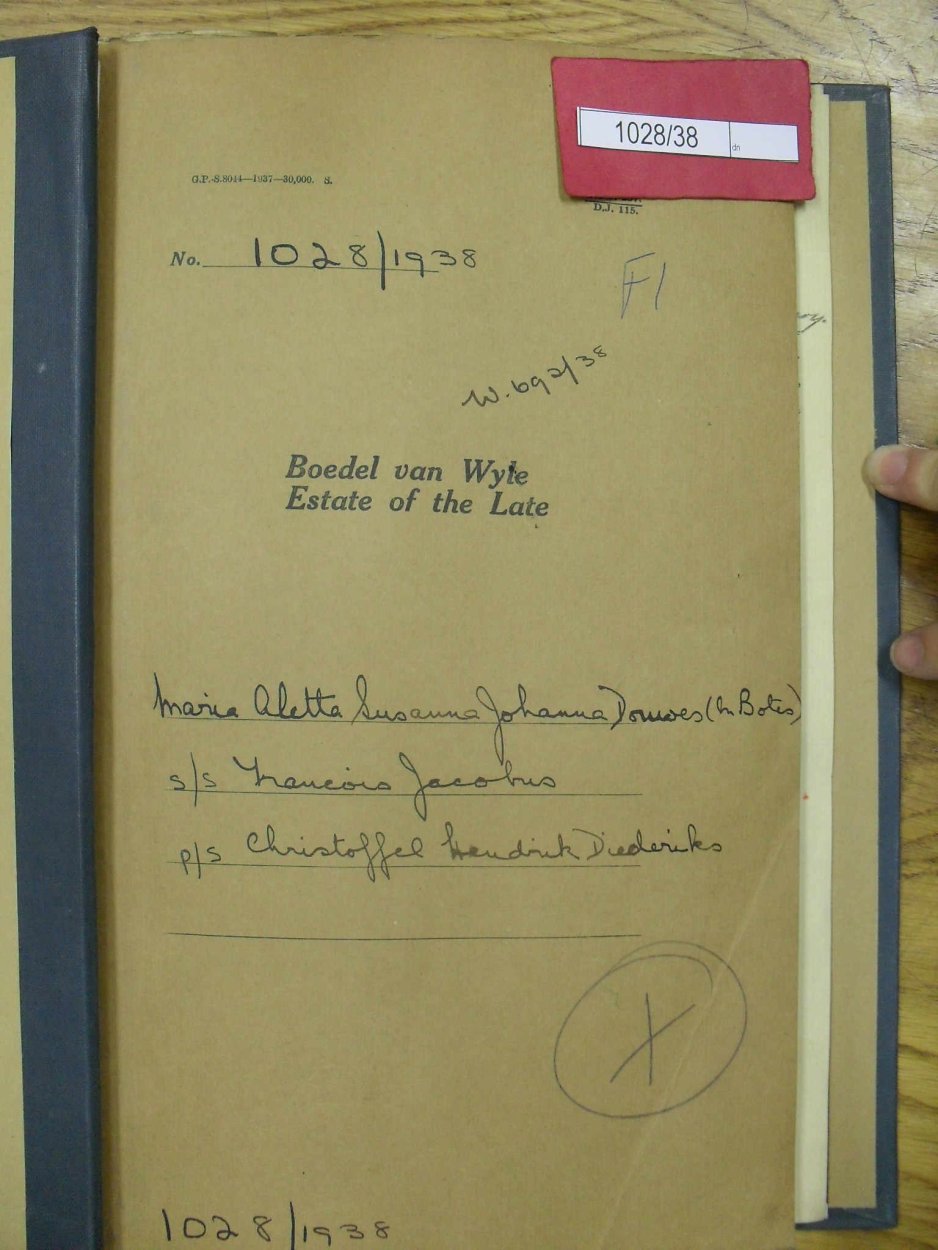 1028/38
dn
G.P.-S.8044—1937—30,000. S.
D.J. 115.
No. 1028/1938
F1
W.692/38
Boedel van Wyle
Estate of the Late
Maria Aletta Susanna Johanna Douwes (bn Botes)
s/s Francois Jacobus
p/s Christoffel Hendrik Diederiks
X
1028/1938